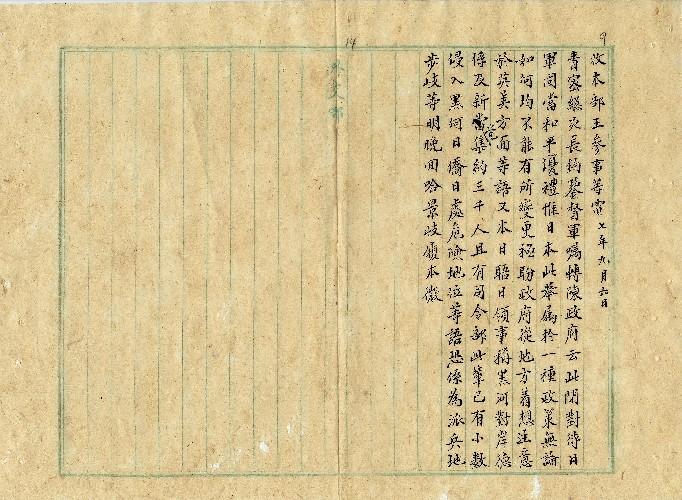 9
14
收本部王參事等電 七年九月六日
青密總次長鈞鑒督軍囑轉陳政府云此間對待日
軍同當和平優禮惟日本此舉屬於一種政策無論
如何均不能有所變更極盼政府從地方着想注意
於英美方面等語又本日晤日領事稱黑河對岸德
俘及新當黨集約三千人且有司令部此輩已有小數
侵入黑河日僑日處危險地位等語恐係為派兵地
步岐等明晚回哈景岐